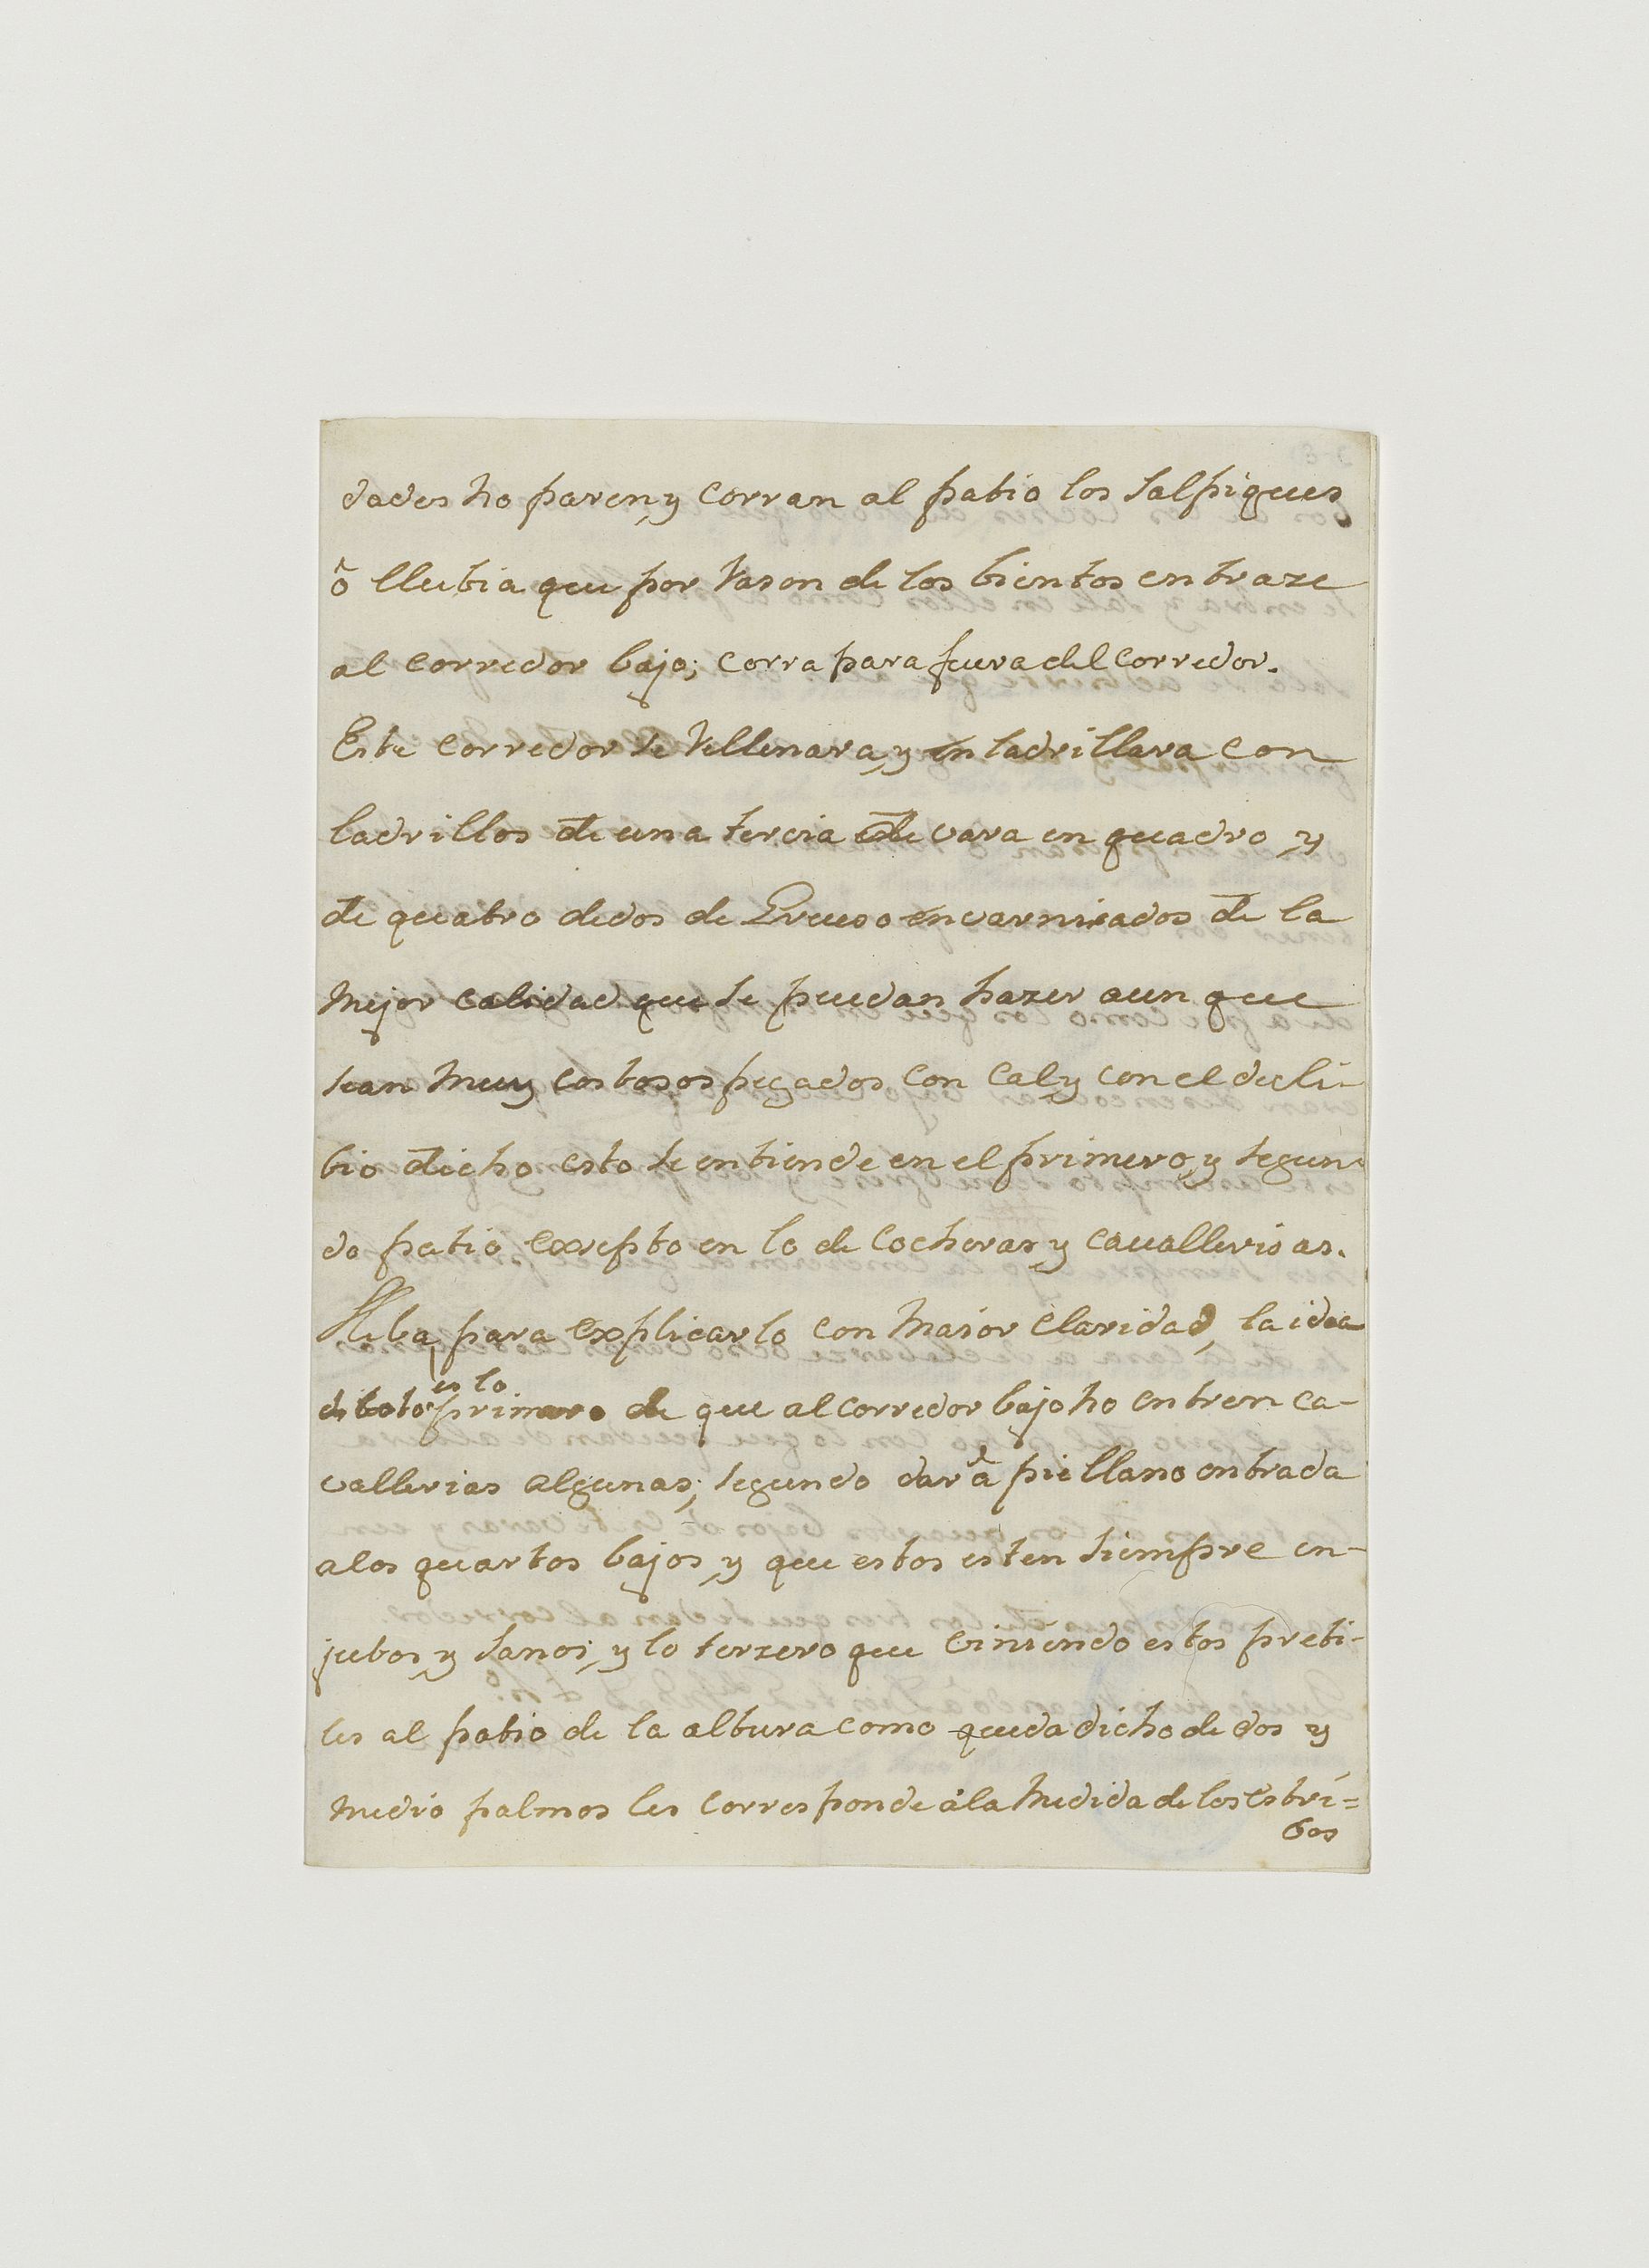 dades no paren, y corran al patio los salpiques
ò llubia que por rason de los bientos entraze
al corredor bajo; corra para fuera del corredor.
Este corredor se rellenara, y enladrillara con
ladrillos de una tercia de vara en quadro, y
de quatro dedos de Grueso envarnisados de la
mejor calidad que se puedan hazer aunque
sean muy costosos pegados con cal, y con el decli-
bio dicho esto se entiende en el primero, y segun-
do patio, exsepto en lo de Cocheras, y cavallerisas.
para explicarlo con maior claridad, la idea
de esto es lo primero de que al corredor bajo no entren ca-
vallerias algunas; segundo dar à pie llano entrada
a los quartos bajos, y que estos esten siempre en-
jutos, y sanos; y lo terzero que viniendo estos preti-
les al patio de la altura como queda dicho de dos y
medio palmos les corresponde à la medida de los estri=
bos